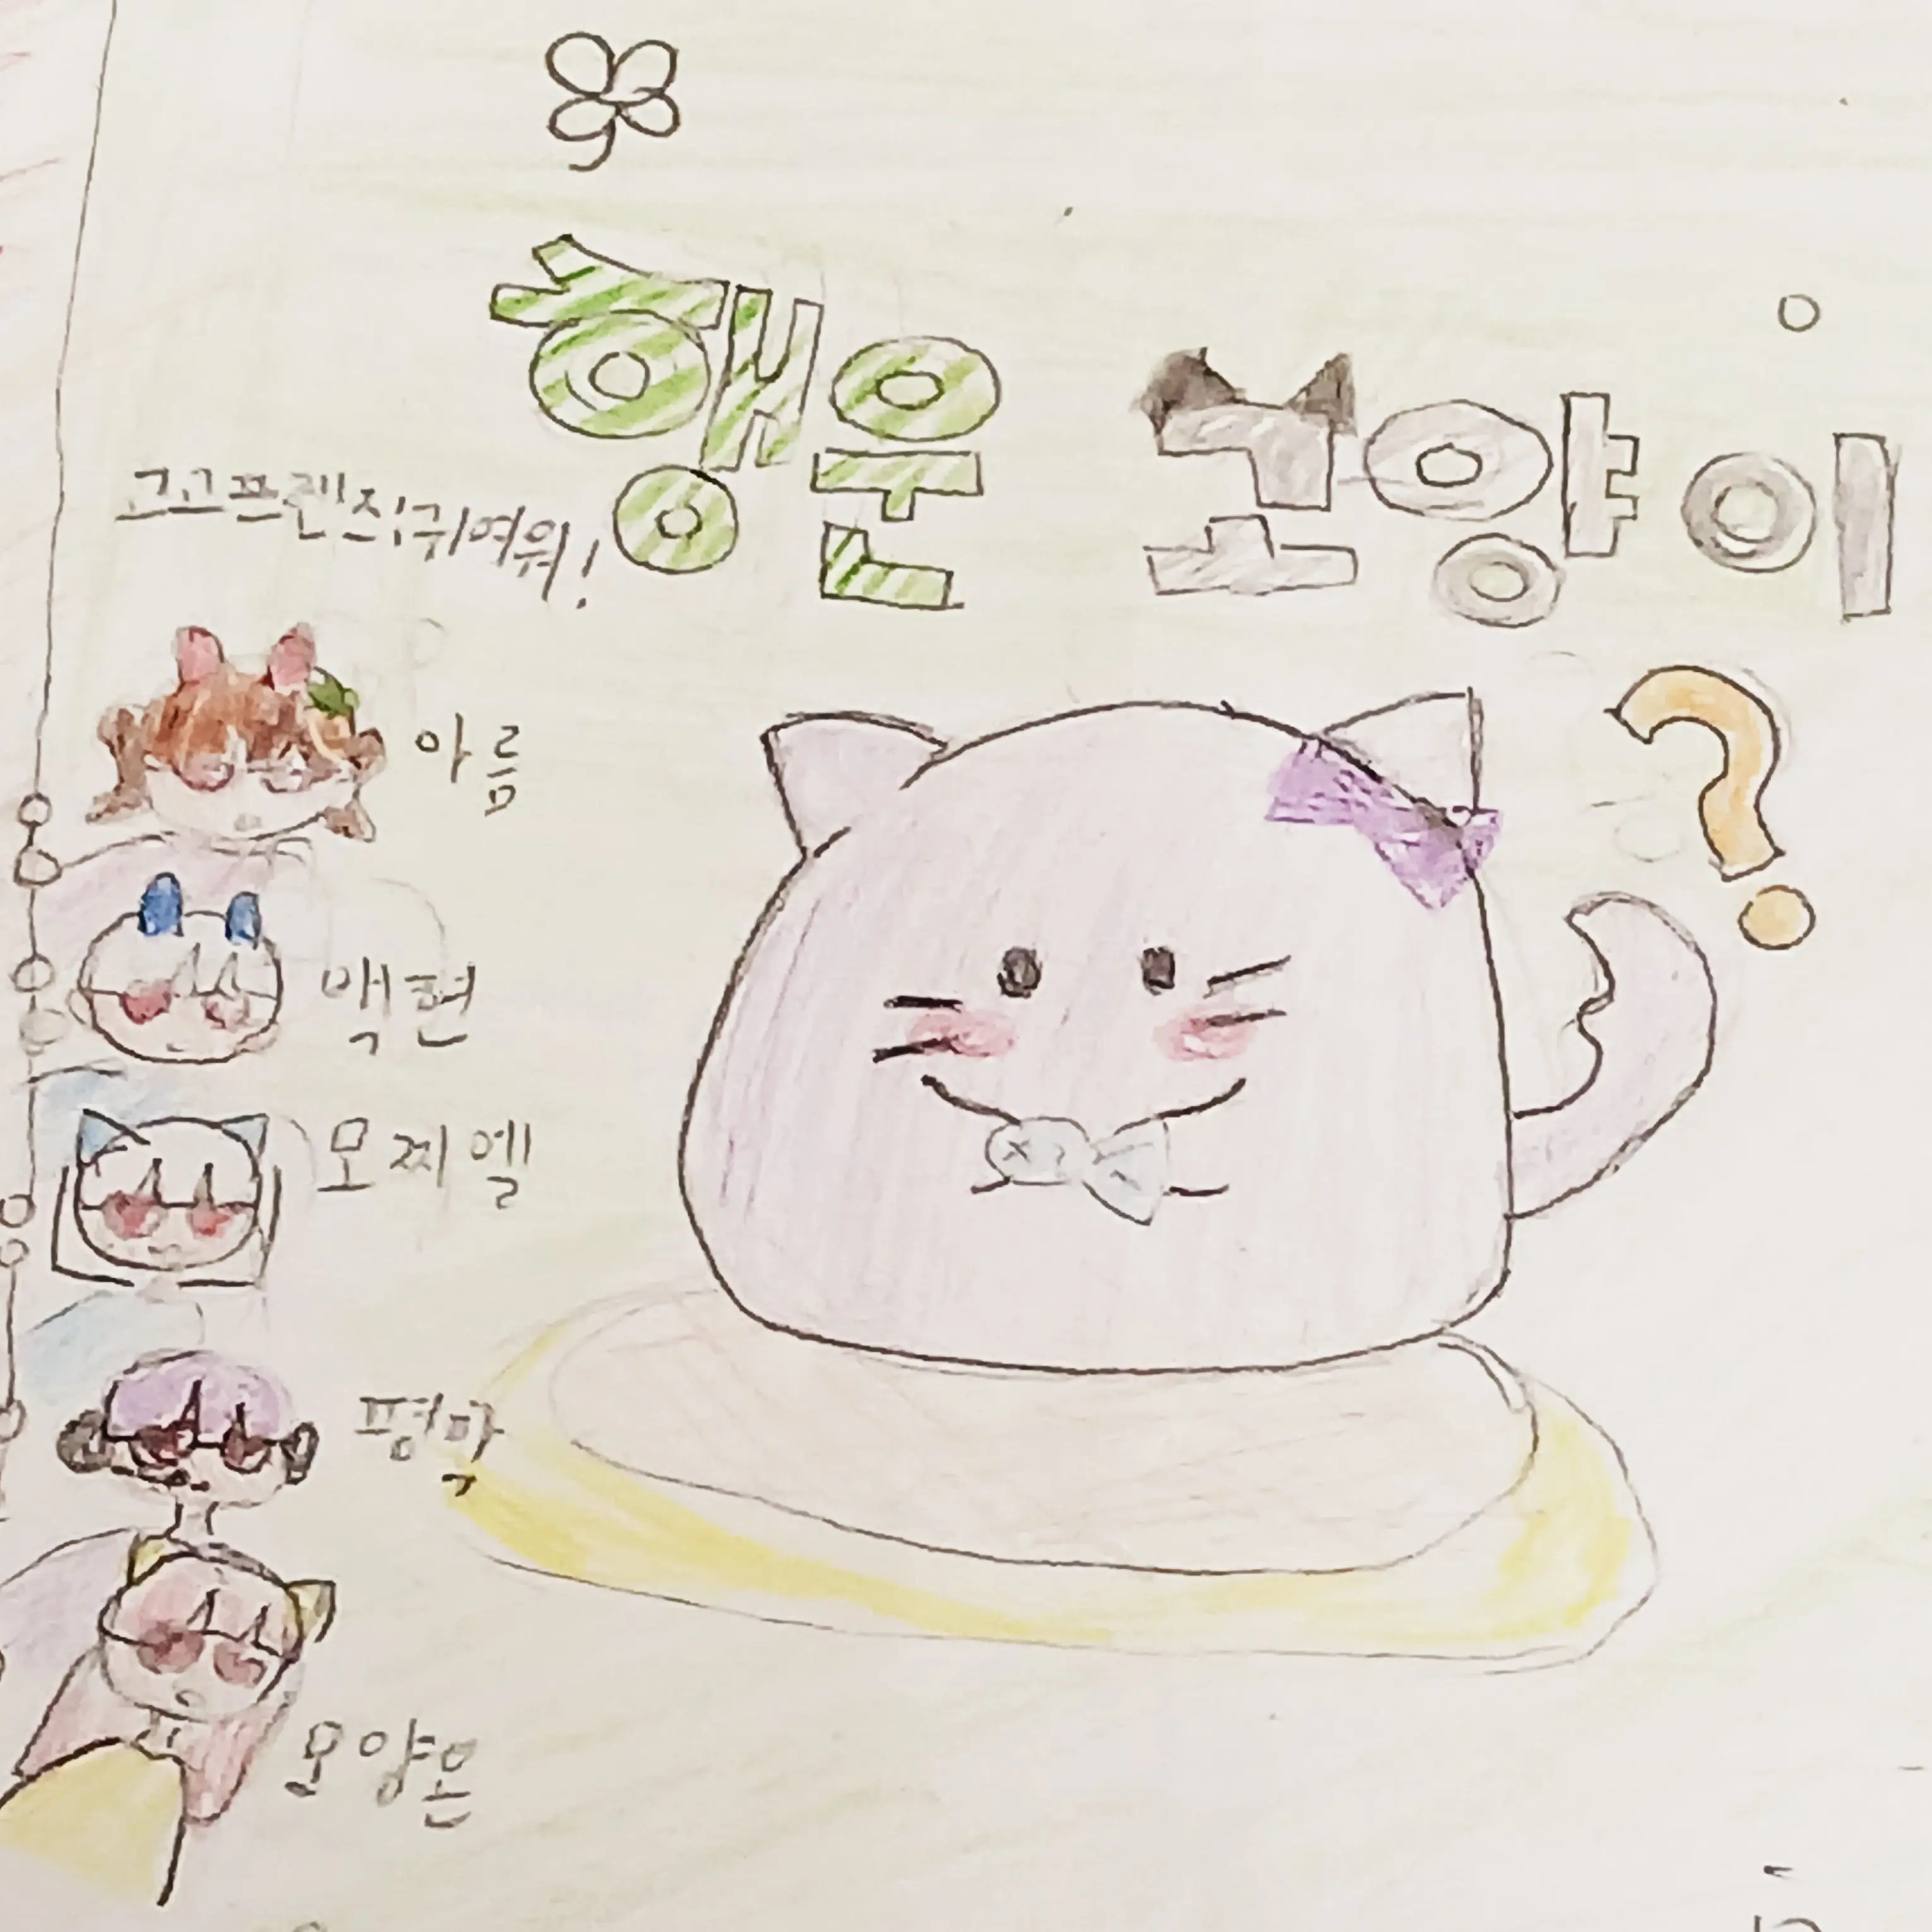 행운 고양이
?
고고프렌즈귀여워!
아름
백현
모찌엘
평막
오양온